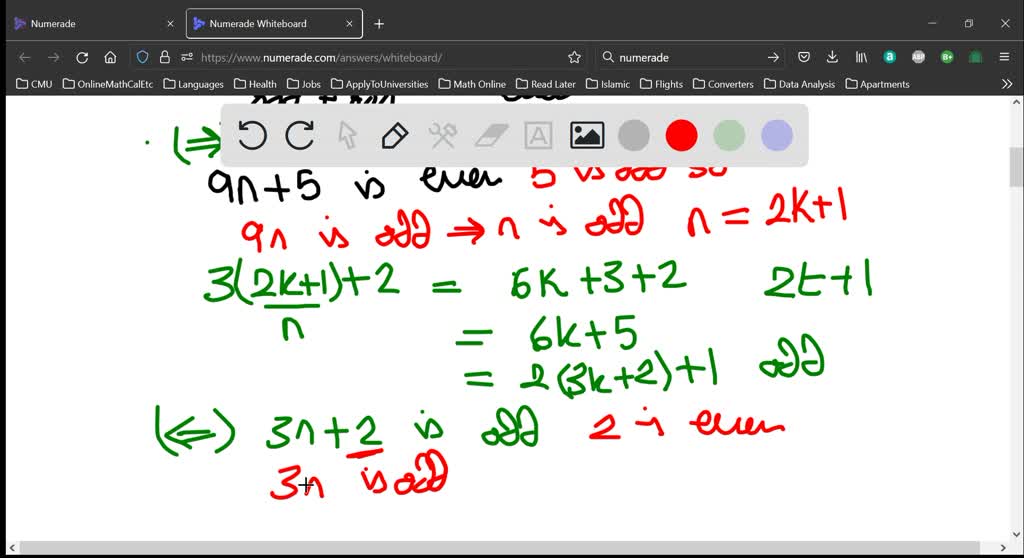 Numerade
Numerade Whiteboard
https://www.numerade.com/answers/whiteboard/
numerade
CMU OnlineMathCalEtc Languages Health Jobs ApplyToUniversities Math Online Read Later Islamic Flights Converters Data Analysis Apartments
(⇒
9n+5 is even 5 is odd so
9n is odd → n is odd n = 2k+1
3(2k+1)+2 = 6k+3+2 2t+1
n
= 6k+5
= 2(3k+2)+1 odd
(⇐) 3n+2 is odd 2 is even
3n is odd